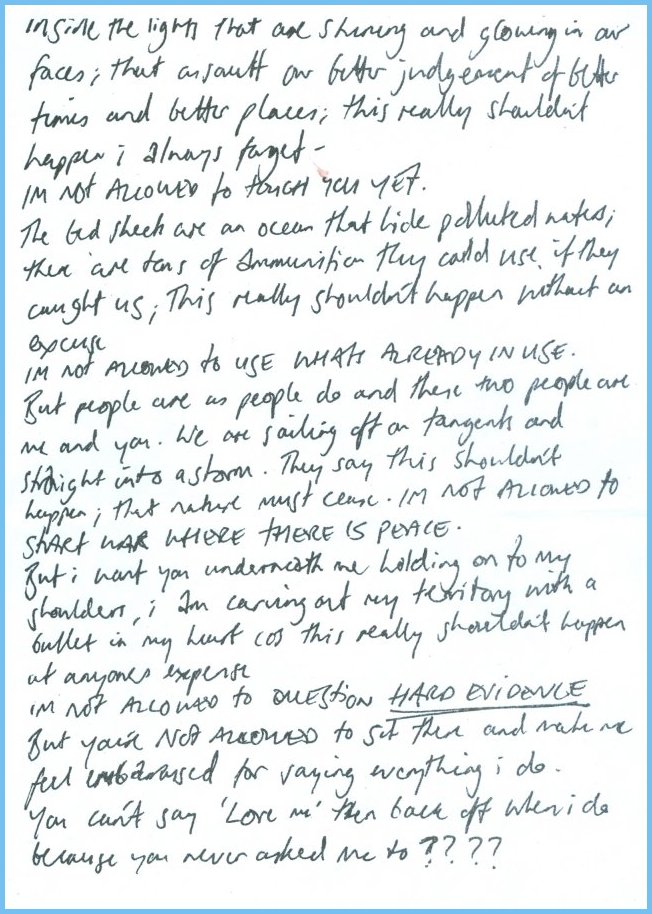 inside the lights that are shining and glowing in our
faces; that assault our better judgement of better
times and better places; this really shouldnt
happen i always forget -
IM NOT ALLOWED to TOUCH YOU YET.
The bed sheets are an ocean that hide polluted waters;
there are tons of Ammunition they could use if they
caught us; This really shouldn't happen without an
excuse
IM NOT ALLOWED TO USE WHATS ALREADY IN USE.
But people are as people do and these two people are
me and you. We are sailing off on tangents and
straight into a storm. They say this shouldn't
happen; that nature must cease. IM NOT ALLOWED to
START WAR WHERE THERE IS PEACE.
But i want you underneath me holding on to my
shoulders, i Am carving out my territory with a
bullet in my heart cos this really shouldn't happen
at anyones expense
IM NOT ALLOWED TO QUESTION HARD EVIDENCE
But you're NOT ALLOWED to sit there and make me
feel embarrased for saying everything i do.
You can't say 'Love me' then back off when i do
because you never asked me to ????